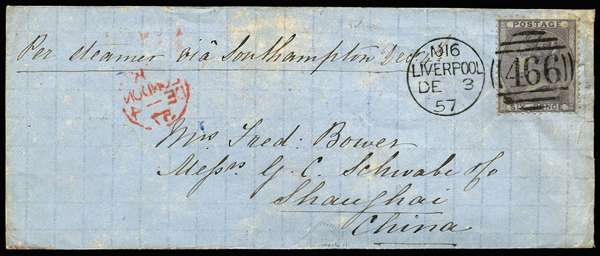 POSTAGE
Per steamer viâ Southampton Dec
M16
LIVERPOOL
DE 3
57
466
SIX PENCE
Mrs Fred: Bower
Messrs G. C. Schwabe & Co
Shanghai
China